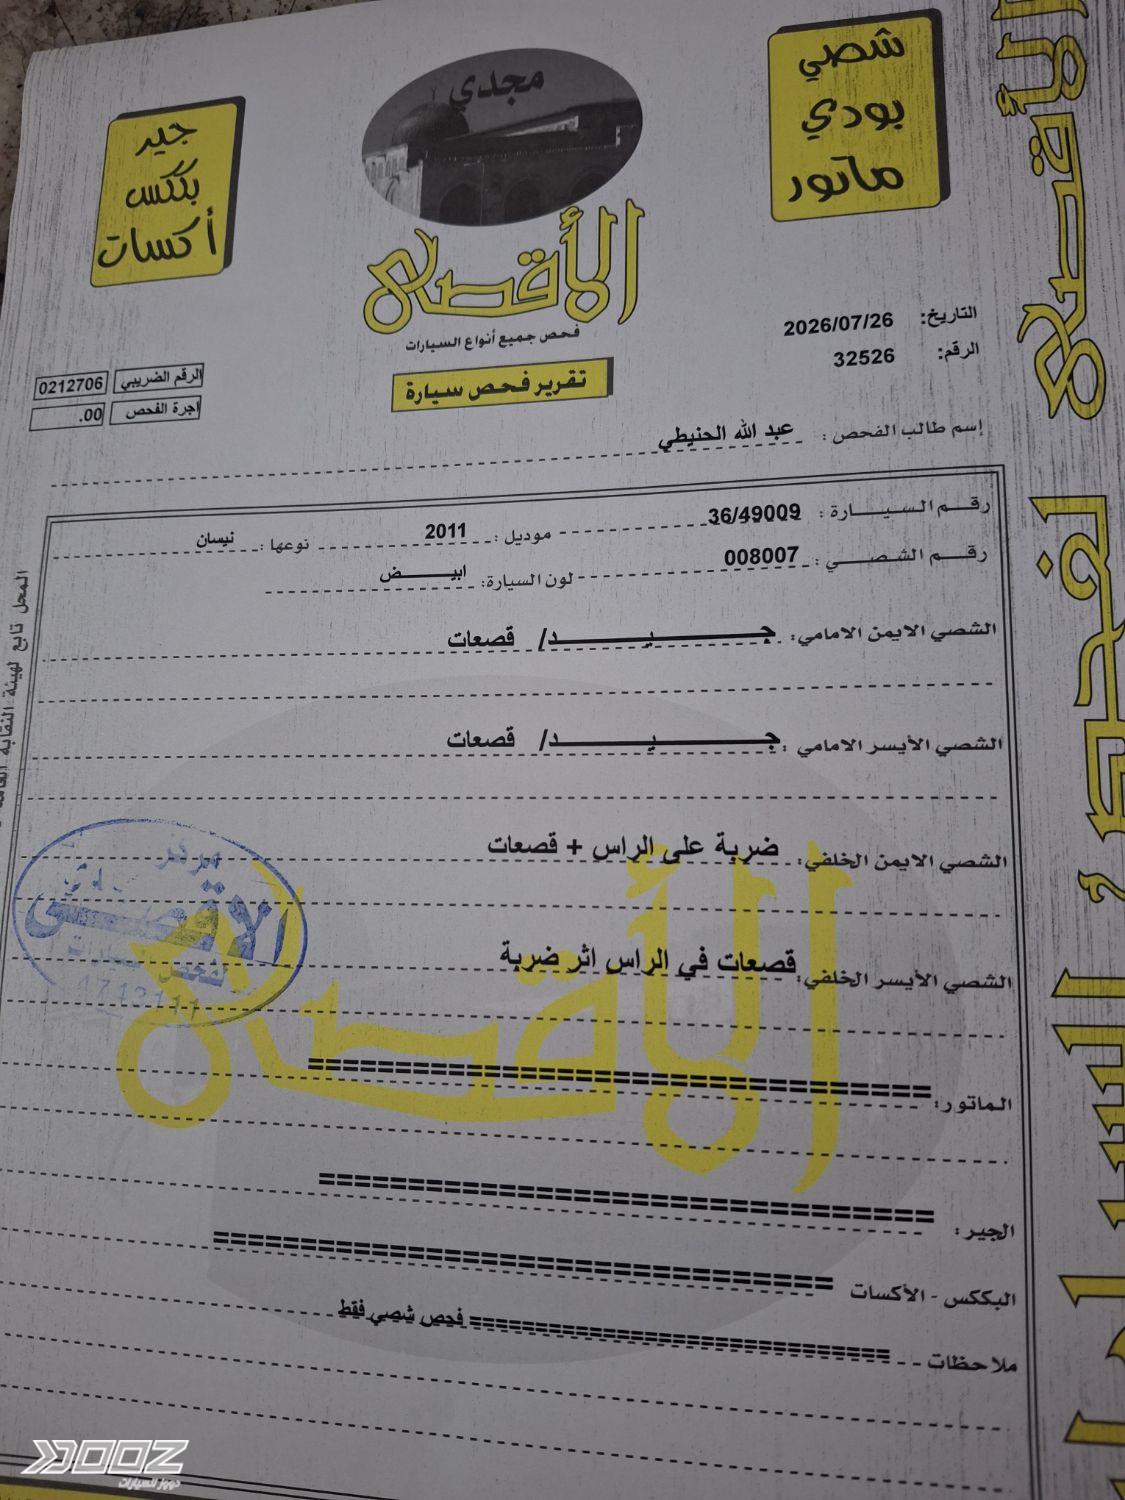 شصي
بودي
ماتور
مجدي
جير
بككس
أكسات
الأقصى
فحص جميع أنواع السيارات
تقرير فحص سيارة
التاريخ: 2026/07/26
الرقم: 32526
الرقم الضريبي 0212706
اجرة الفحص 00.
إسم طالب الفحص: عبد الله الحنيطي
رقم السيارة: 36/49009 موديل: 2011 نوعها: نيسان
رقم الشصي: 008007 لون السيارة: ابيض
الشصي الايمن الامامي: جيد/ قصعات
الشصي الأيسر الامامي: جيد/ قصعات
الشصي الايمن الخلفي: ضربة على الراس + قصعات
الشصي الأيسر الخلفي: قصعات في الراس اثر ضربة
الماتور: ====================================
الجير: ====================================
البككس - الأكسات ====================================
ملاحظات ============================ فحص شصي فقط
مركز
الاقصى
لفحص السيارات
4713111
الأقصى لفحص السيارات
المحل تابع لهيئة النقابة
الأقصى
DOOZ
دووز للسيارات